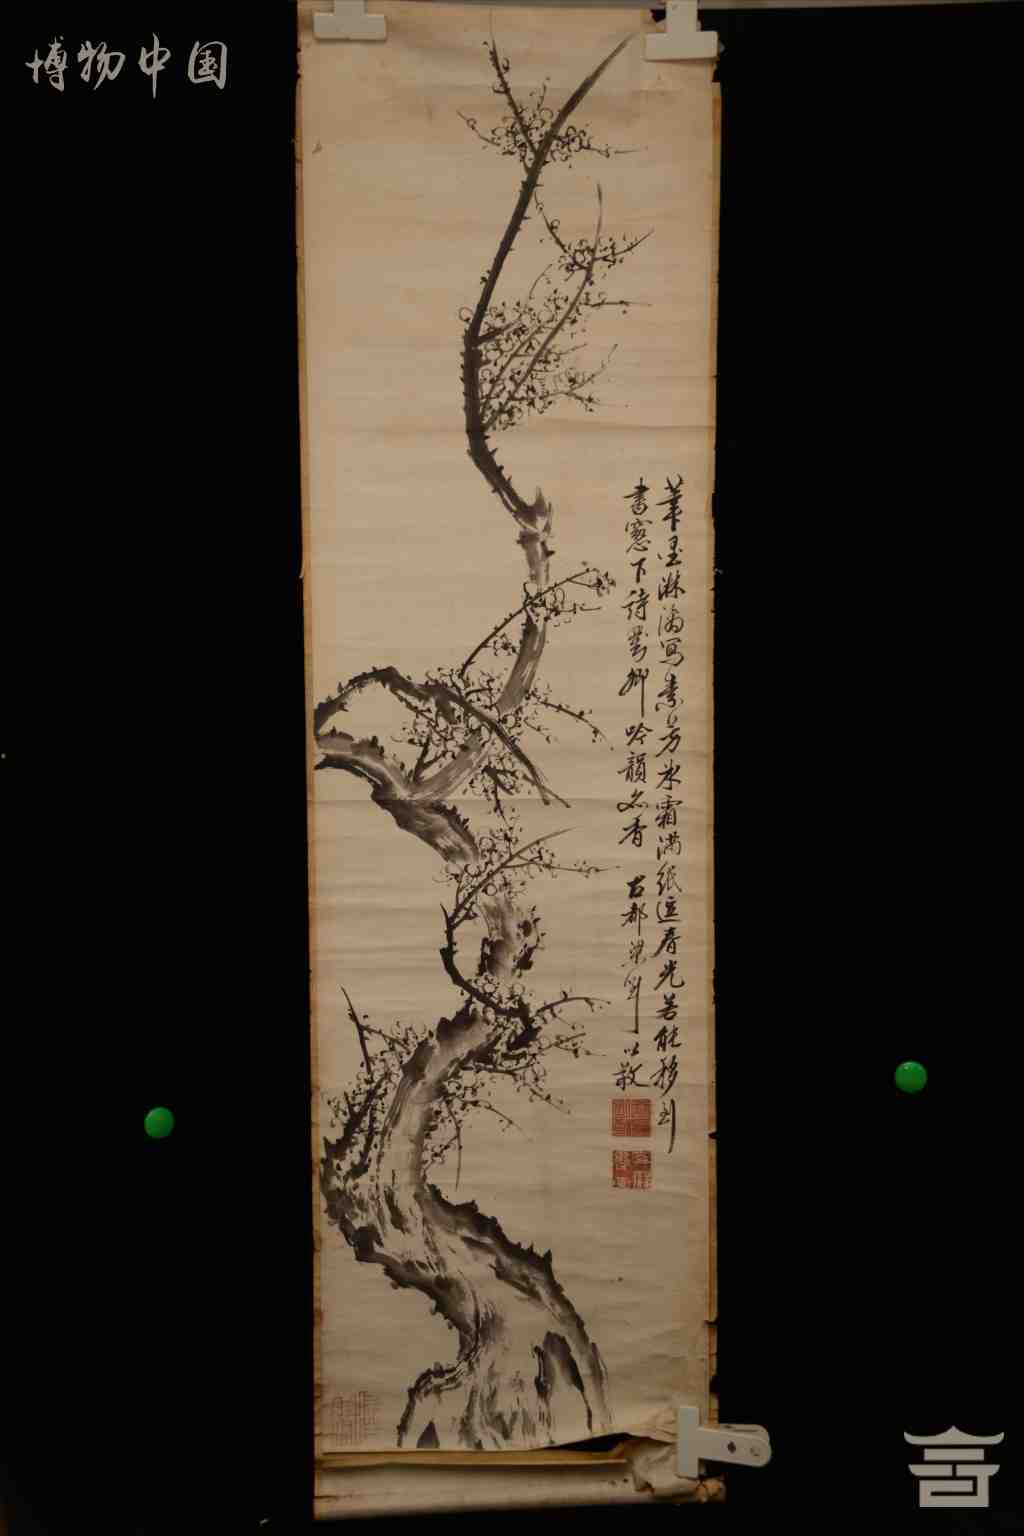 博物中国
笔墨淋漓写素芳冰霜满纸逗春光若能移到
書窓下詩對卿吟韻亦香 古都梁以敬